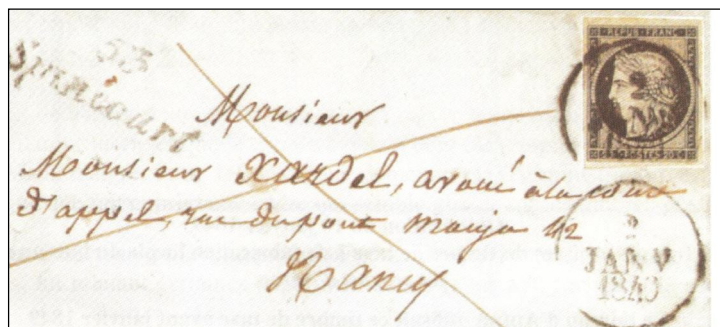 53
Spincourt
REPUB. FRANC.
Monsieur
Monsieur Xardel, avoué à la cour
d'appel, rue du pont mouja 42
Nancy
20 c POSTES 20 c
2
JANV
1849